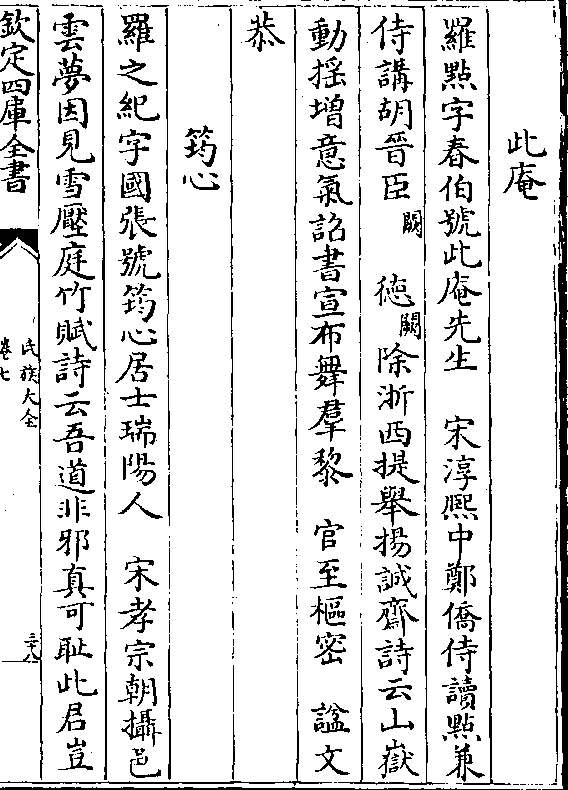 此庵
羅點字春伯號此庵先生　宋淳熙中鄭僑侍讀點兼
侍講胡晉臣闕　德闕除浙西提舉揚誠齋詩云山嶽
動揺增意氣詔書宣布舞羣黎　官至樞密　諡文
恭
筠心
羅之紀字國張號筠心居士瑞陽人　宋孝宗朝攝邑
雲夢因見雪壓庭竹賦詩云吾道非邪真可耻此君豈
欽定四庫全書
氏族大全
卷七
三十八